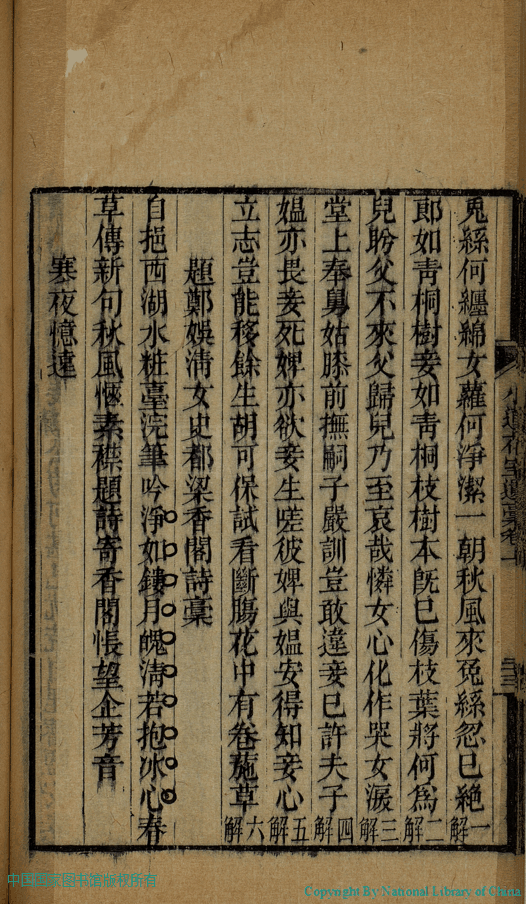 兎絲何纏綿女蘿何淨潔一朝秋風來兎絲忽已絶一解
郎如青桐樹妾如青桐枝樹本旣已傷枝葉將何爲二解
兒盼父不來父歸兒乃至哀哉憐女心化作哭女淚三解
堂上奉舅姑膝前撫嗣子嚴訓豈敢違妾已許夫子四解
媼亦畏妾死婢亦欲妾生嗟彼婢與媼安得知妾心五解
立志豈能移餘生胡可保試看斷腸花中有卷葹草六解
題鄭娛淸女史都梁香閣詩稾
自挹西湖水粧臺浣筆吟淨如鏤月魄淸若抱冰心春
草傳新句秋風愜素襟題詩寄香閣悵望企芳音
寒夜憶遠
中国国家图书馆版权所有
Copyright By National Library of China